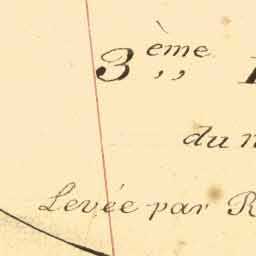 3ème
du
Levée par